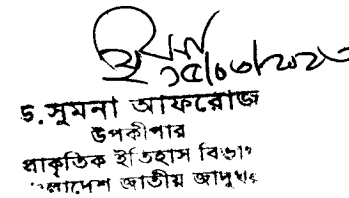 ১৫/০৬/২০২৩
ড. সুমনা আফরোজ
উপকীপার
প্রাকৃতিক ইতিহাস বিভাগ
বাংলাদেশ জাতীয় জাদুঘর